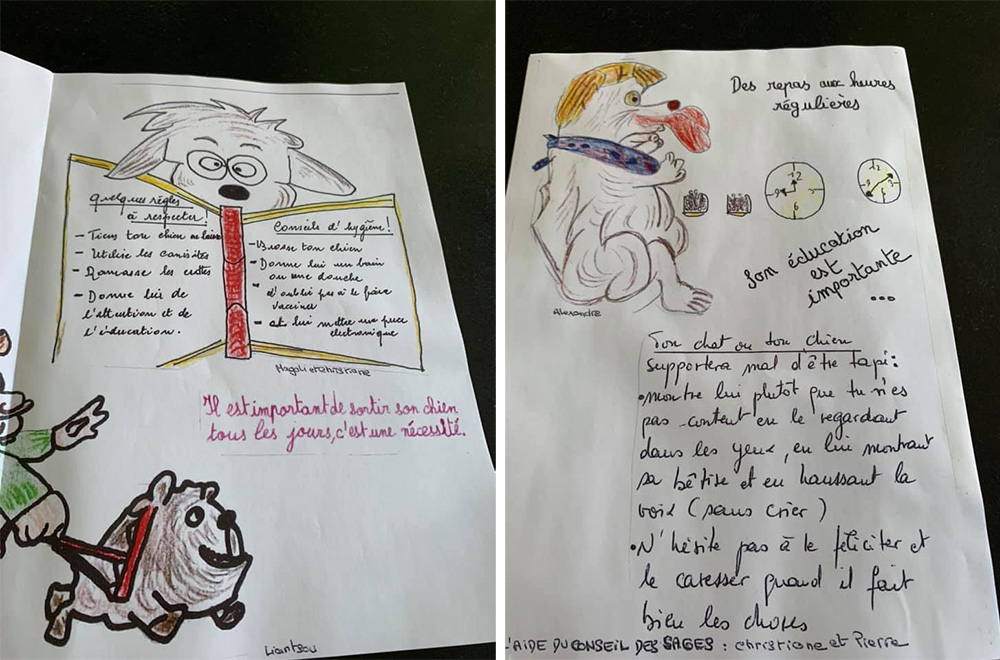 Quelques règles
à respecter!
- Tiens ton chien en laisse
- Utilise les canisites
- Ramasse les crottes
- Donne lui de
l'attention et de
l'éducation.
Conseils d'hygiène!
- Brosse ton chien
- Donne lui un bain
ou une douche
- N'oublie pas de le faire
vacciner
- et lui mettre une puce
électronique
Magali et christiane
Il est important de sortir son chien
tous les jours, c'est une nécessité.
Liantsou
Des repas aux heures
régulières
12
3
6
9
Alexandre
Son éducation
est
importante
...
Ton chat ou ton chien
supportera mal d'être tapé:
• montre lui plutôt que tu n'es
pas content en le regardant
dans les yeux, en lui montrant
sa bêtise et en haussant la
voix (sans crier)
• N'hésite pas à le féliciter et
le caresser quand il fait
bien les choses
L'AIDE DU CONSEIL DES SAGES : christiane et Pierre